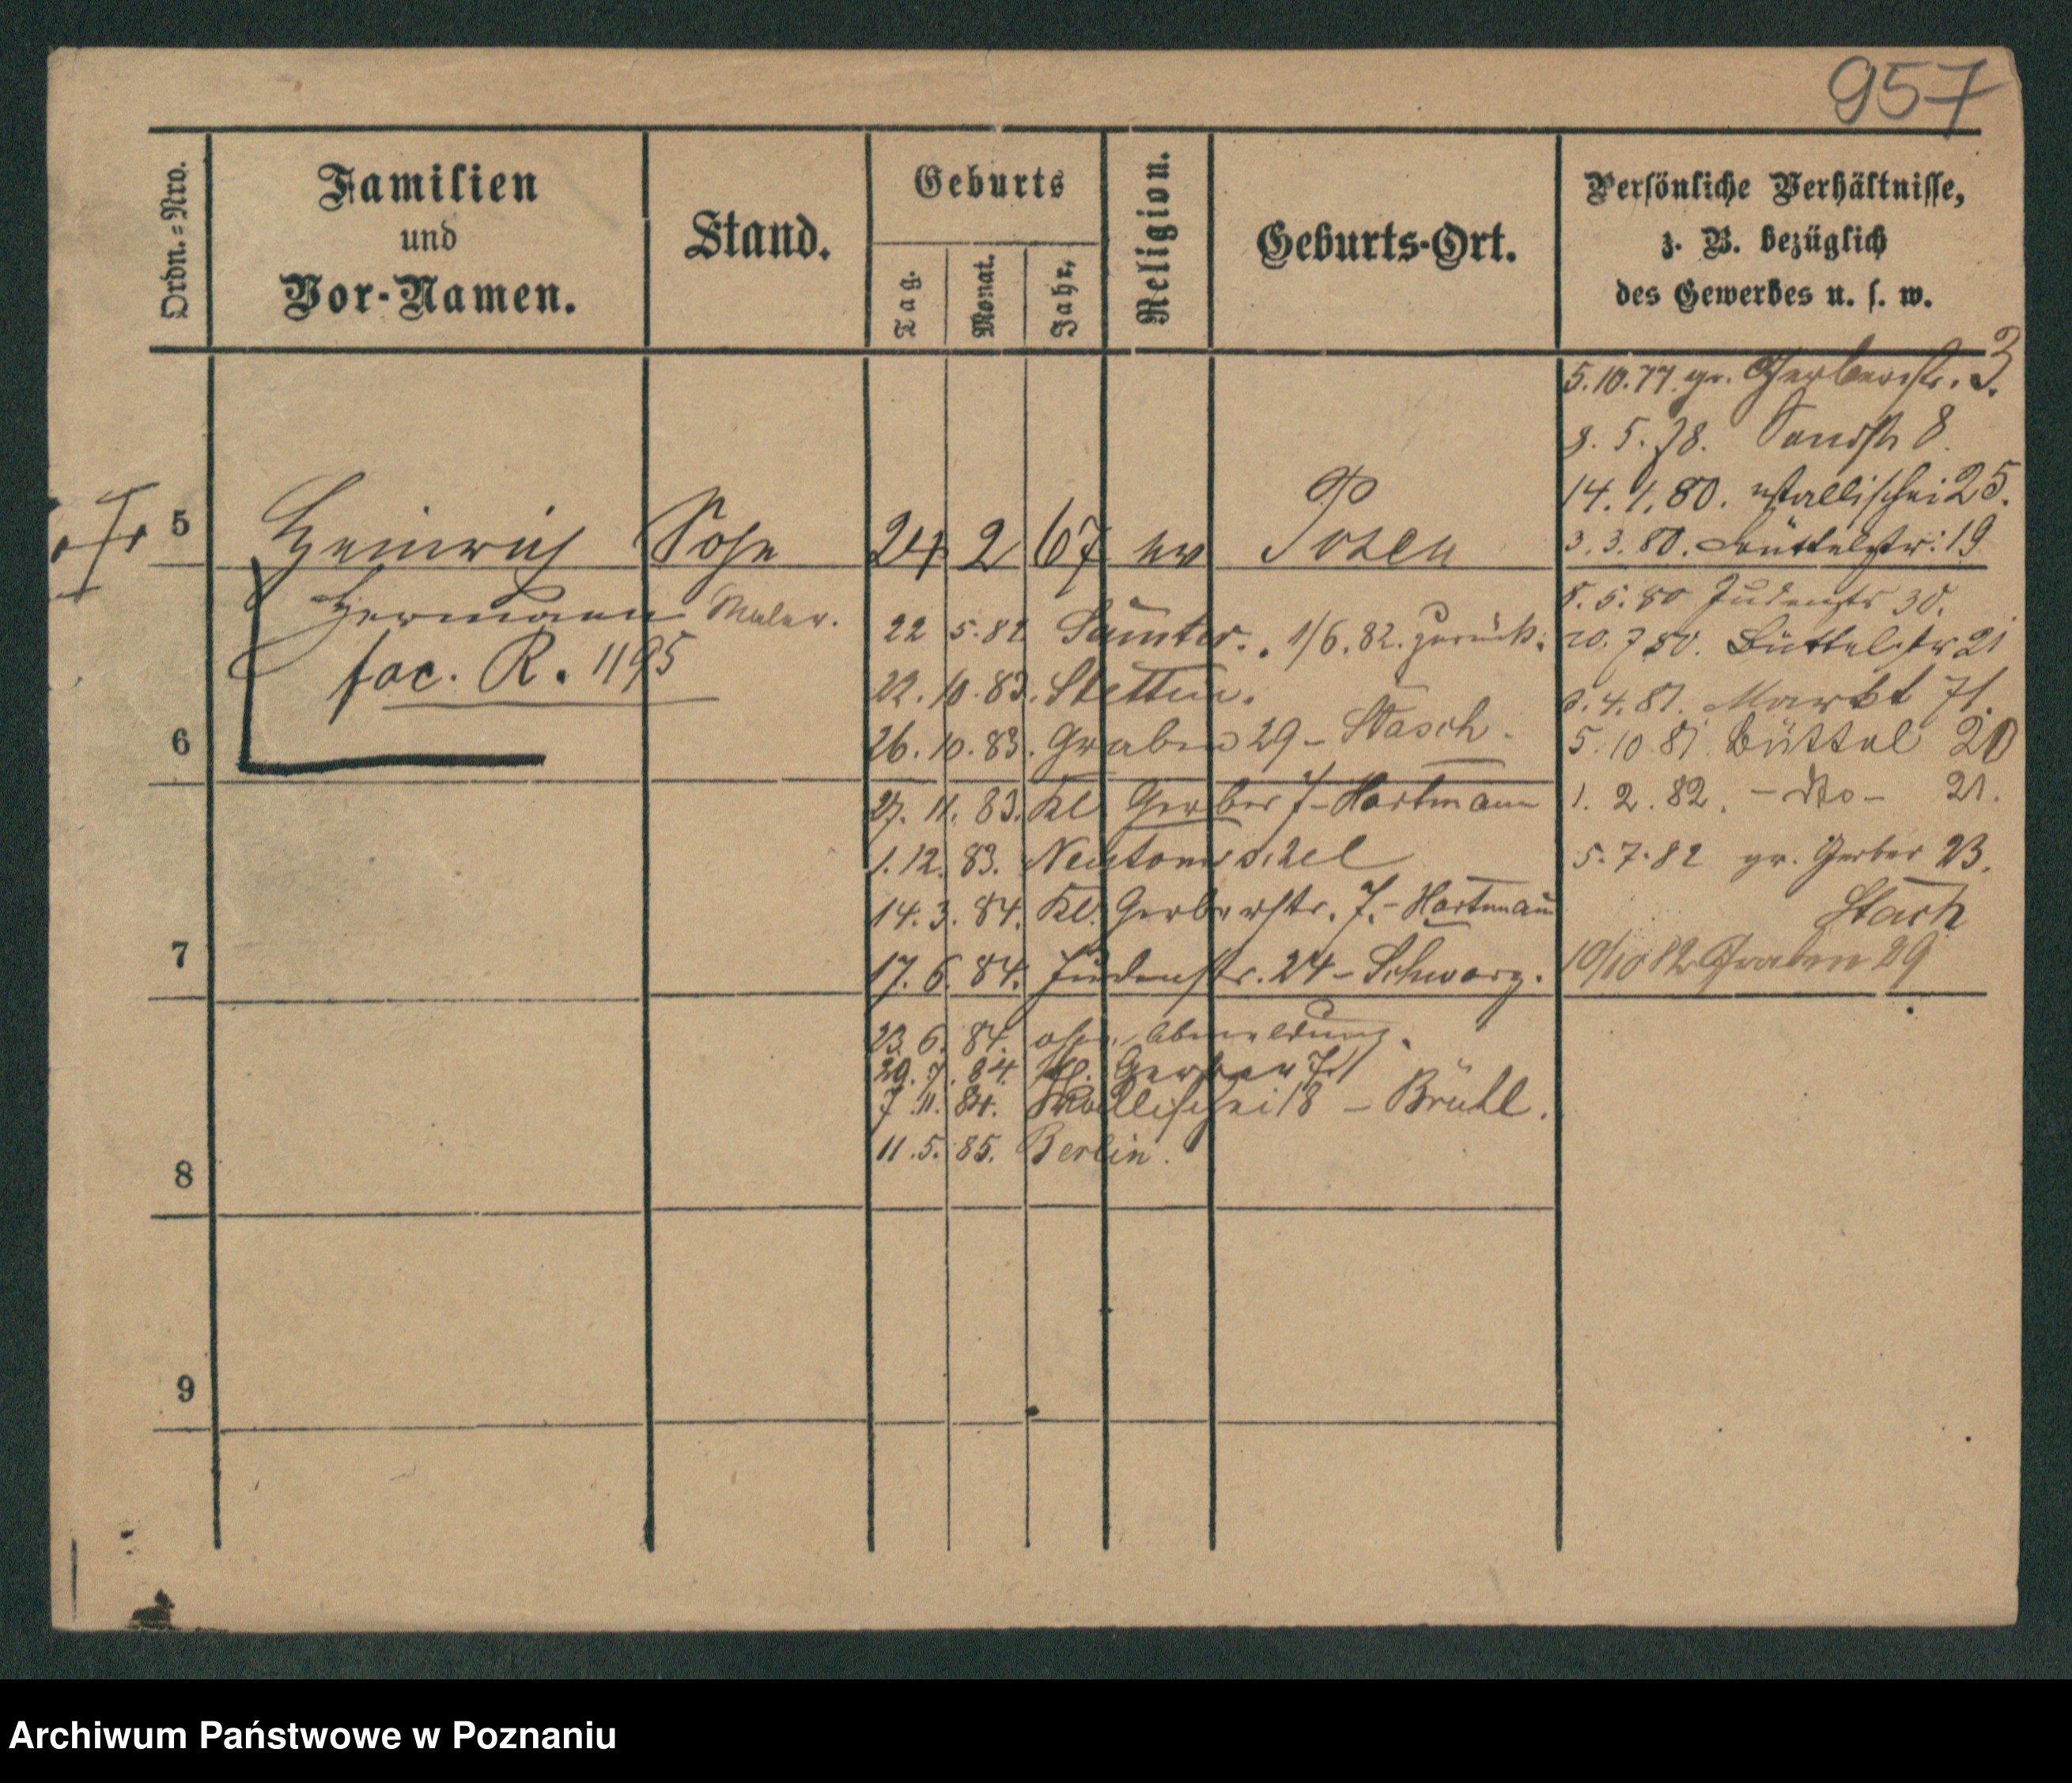 957
Ordn.=Nro.
Familien
und
Vor-Namen.
Stand.
Geburts
Tag.
Monat.
Jahr.
Religion.
Geburts-Ort.
Persönliche Verhältnisse,
z. B. bezüglich
des Gewerbes u. s. w.
5 Heinrich Sohn 24 2 67 ev Posen
Hermann Maler.
fac. R. 1195
22 5. 82 Samter. 1/6. 82. zurück.
22. 10. 83. Stettin.
6
26. 10. 83. Graben 29 - Stasch.
27. 11. 83. Kl Gerber 7 - Hartmann
1. 12. 83. Neutomischel
14. 3. 84. Kl. Gerberstr. 7. - Hartmann
7
17. 6. 84. Judenstr. 24 - Schwarz.
23. 6. 84. ohne Abmeldung.
29. 7. 84. Kl. Gerber 7
7 11. 84. Wallischei 18 - Brühl.
11. 5. 85. Berlin.
8
9
5. 10. 77. gr. Gerberstr. 3.
8. 5. 78. Sandstr 8.
14. 1. 80. Wallischei 25.
3. 3. 80. Büttelstr: 19
8. 5. 80 Judenstr 30.
20. 7 80. Büttelstr 21
2. 4. 81. Markt 71.
5. 10. 81. Büttel 20
1. 2. 82. - do - 21.
5. 7. 82 gr. Gerber 23.
Stasch
10/10 82 Graben 29
Archiwum Państwowe w Poznaniu